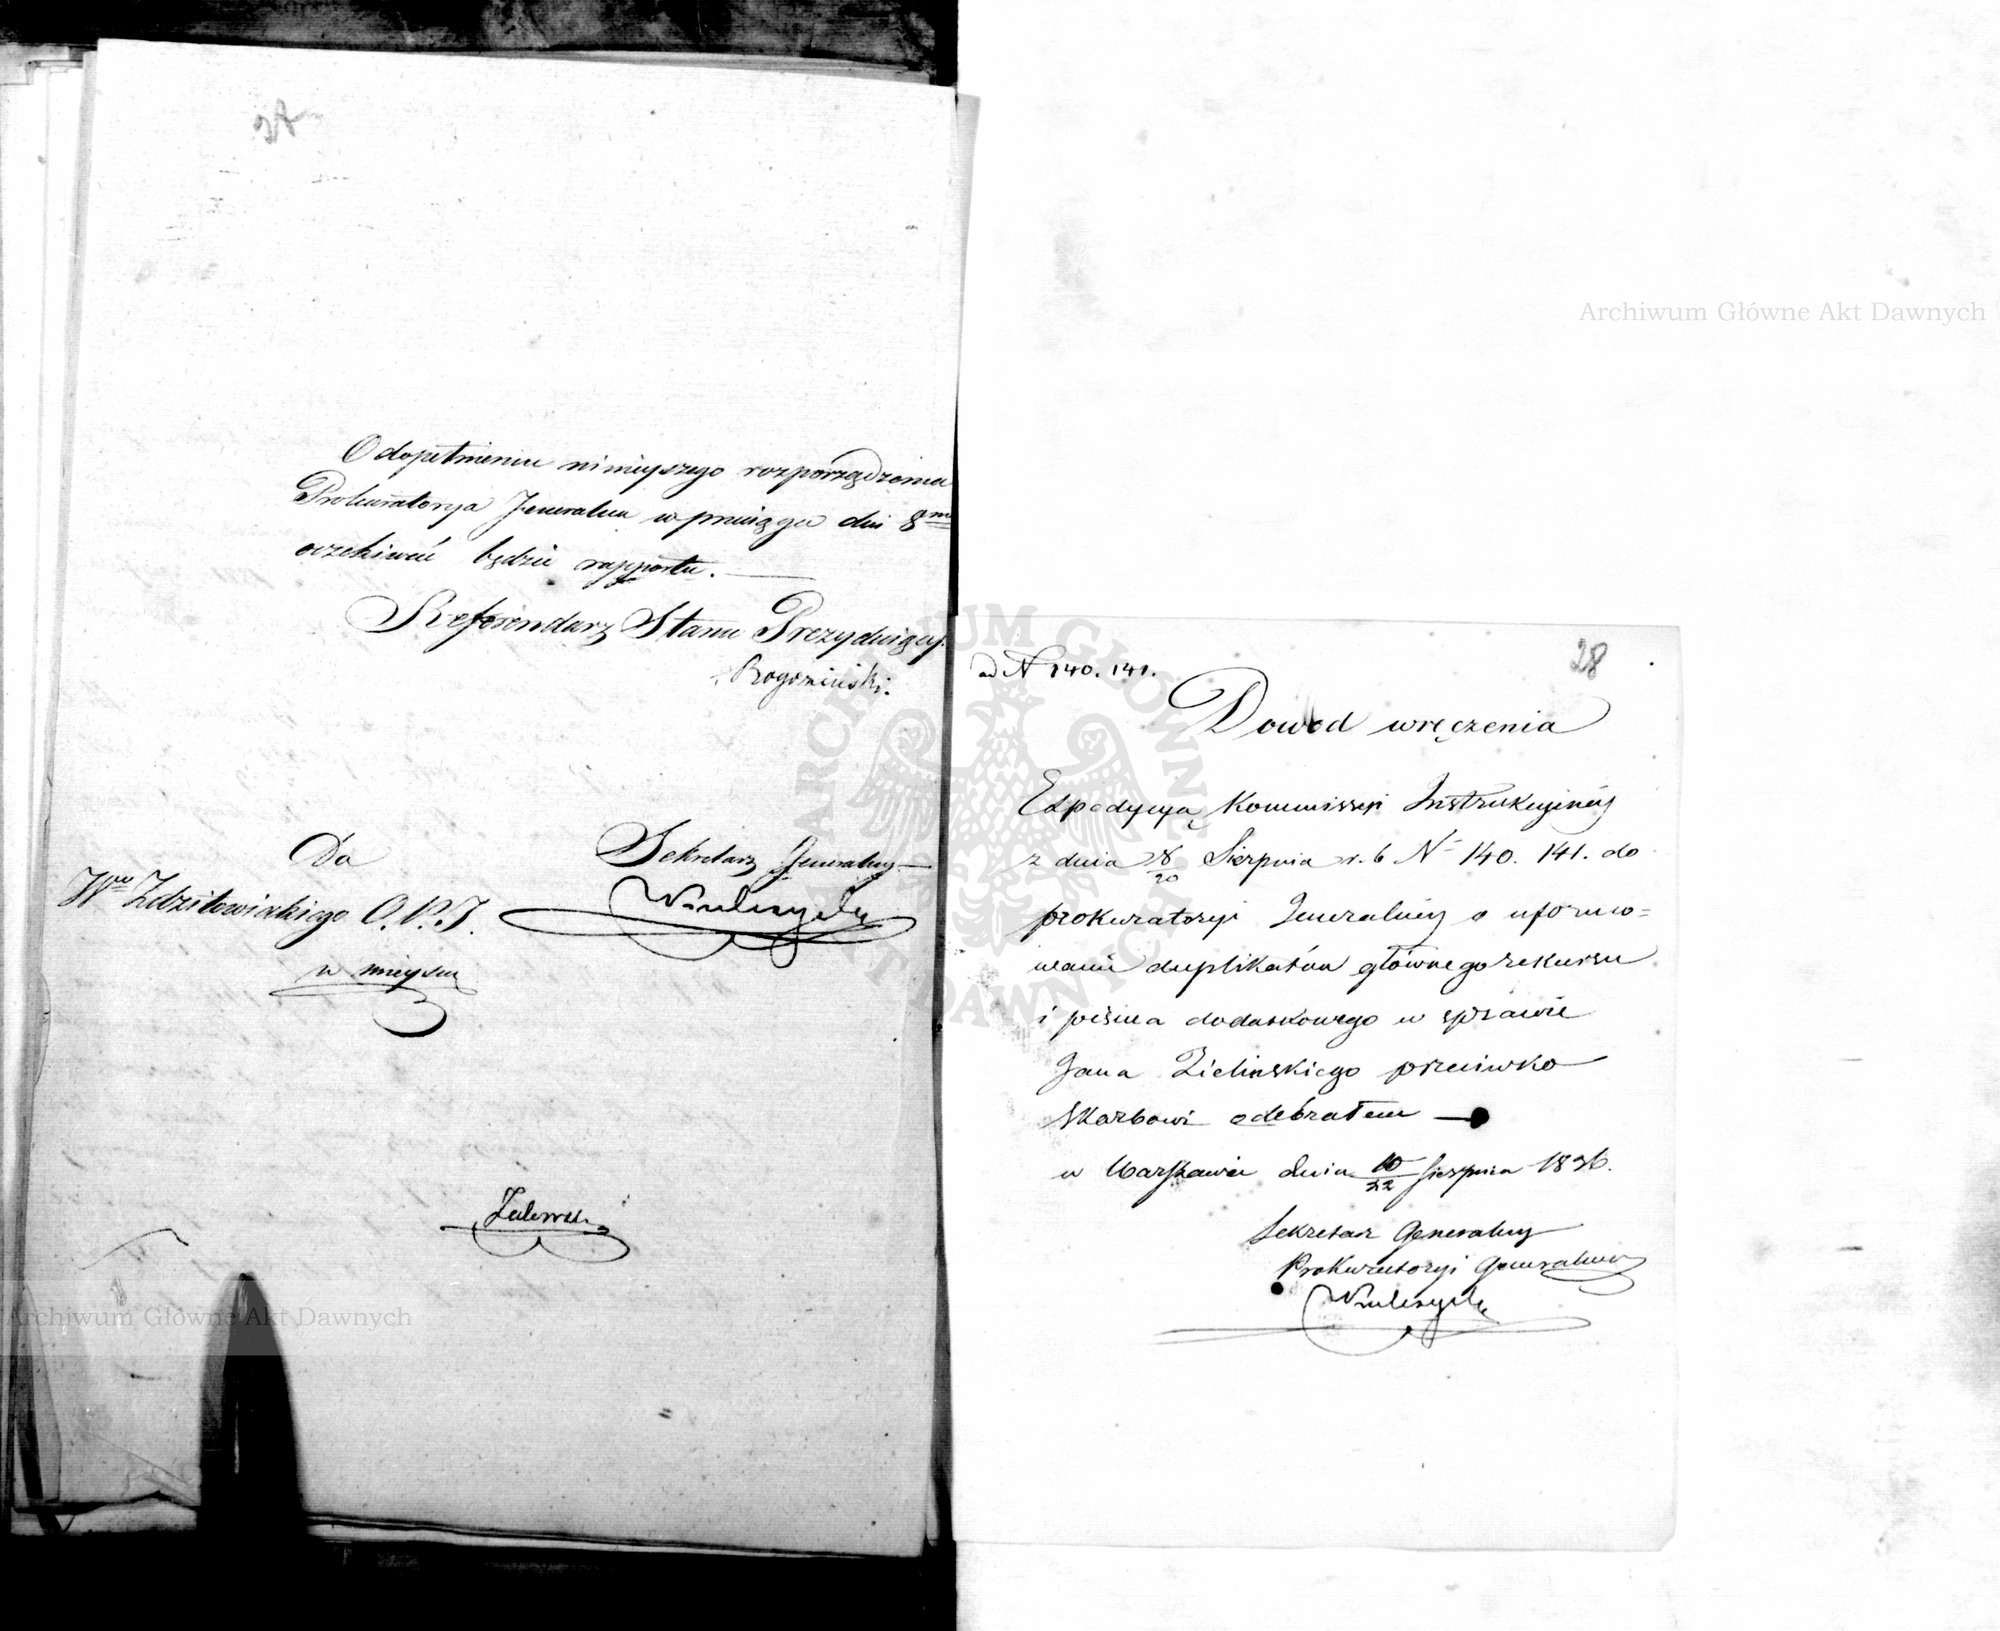 O dopełnieniu ninieyszego rozporządzenia
Prokuratorya Jeneralna w przeciągu dni 8mu
oczekiwać będzie rapportu.
Referendarz Stanu Prezyduiący.
Do
Sekretarz Jeneralny
w mieyscu
Archiwum Główne Akt Dawnych
28
ad N 140. 141.
Dowod wręczenia
Expedycyą Kommissyi Instrukcyiney
z dnia 8/20 Sierpnia r. b N 140. 141. do
prokuratoryi Jeneralney o uformo=
wanie duplikatów głównego rekursu
i pisma dodatkowego w sprawie
Jana Zielinskiego przeciwko
Skarbowi odebrałem —
w Warszawie dnia 10/22 Sierpnia 1836.
Sekretarz Generalny
Prokuratoryi Generalney
Archiwum Główne Akt Dawnych
ARCHIWUM GŁÓWNE AKT DAWNYCH